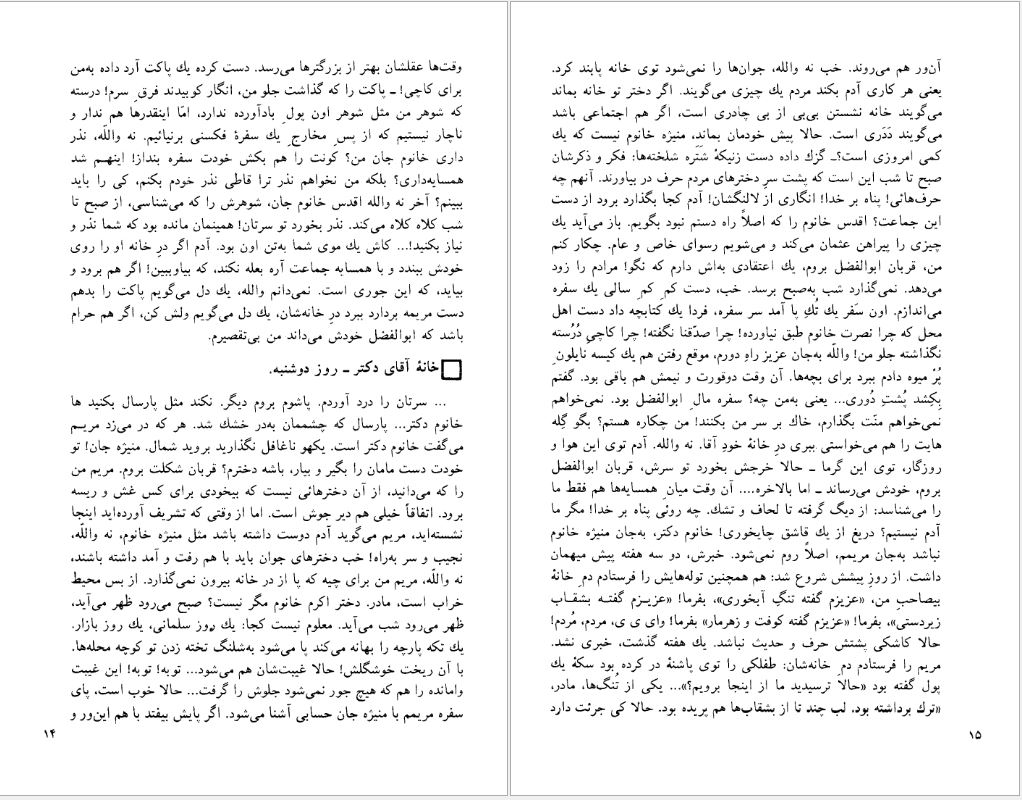 وقت‌ها عقلشان بهتر از بزرگترها می‌رسد. دست کرده یك پاکت آرد داده به‌من
برای کاچی! ـ پاکت را که گذاشت جلو من، انگار کوبیدند فرقِ سرم! درسته
که شوهر من مثل شوهر اون پولِ بادآورده ندارد، امّا اینقدرها هم ندار و
ناچار نیستیم که از پسِ مخارجِ یك سفرهٔ فکسنی برنیائیم. نه واللّه، نذر
داری خانوم جان من؟ کونت را هم بکش خودت سفره بنداز! اینهم شد
همسایه‌داری؟ بلکه من نخواهم نذر ترا قاطی نذر خودم بکنم، کی را باید
ببینم؟ آخر نه والله اقدس خانوم جان، شوهرش را که می‌شناسی، از صبح تا
شب کلاه کلاه می‌کند. نذر بخورد تو سرتان! همینمان مانده بود که شما نذر و
نیاز بکنید!... کاش یك موی شما به‌تن اون بود. آدم اگر درِ خانه او را روی
خودش ببندد و با همسایه جماعت آره بعله نکند، که بیاوببین! اگر هم برود و
بیاید، که این جوری است. نمی‌دانم والله، یك دل می‌گویم پاکت را بدهم
دست مریمه بردارد ببرد درِ خانه‌شان، یك دل می‌گویم ولش کن، اگر هم حرام
باشد که ابوالفضل خودش می‌داند من بی‌تقصیرم.
خانهٔ آقای دکتر ـ روز دوشنبه.
... سرتان را درد آوردم. پاشوم بروم دیگر. نکند مثل پارسال بکنید ها
خانوم دکتر... پارسال که چشممان به‌در خشك شد. هر که در می‌زد مریم
می‌گفت خانوم دکتر است. یکهو ناغافل نگذارید بروید شمال. منیژه جان! تو
خودت دست مامان را بگیر و بیار، باشه دخترم؟ قربان شکلت بروم. مریم من
را که می‌دانید، از آن دخترهائی نیست که بیخودی برای کس غش و ریسه
برود. اتفاقاً خیلی هم دیر جوش است. اما از وقتی که تشریف آورده‌اید اینجا
نشسته‌اید، مریم می‌گوید آدم دوست داشته باشد مثل منیژه خانوم، نه واللّه،
نجیب و سر به‌راه! خب دخترهای جوان باید با هم رفت و آمد داشته باشند،
نه واللّه، مریم من برای چیه که پا از در خانه بیرون نمی‌گذارد. از بس محیط
خراب است، مادر. دختر اکرم خانوم مگر نیست؟ صبح می‌رود ظهر می‌آید،
ظهر می‌رود شب می‌آید. معلوم نیست کجا: یك روز سلمانی، یك روز بازار.
یك تکه پارچه را بهانه می‌کند پا می‌شود به‌شلنگ تخته زدن تو کوچه محله‌ها.
با آن ریخت خوشگلش! حالا غیبت‌شان هم می‌شود... توبه! توبه! این غیبت
وامانده را هم که هیچ جور نمی‌شود جلوش را گرفت... حالا خوب است، پای
سفره مریمم با منیژه جان حسابی آشنا می‌شود. اگر پایش بیفتد با هم این‌ور و
۱۴
آن‌ور هم می‌روند. خب نه والله، جوان‌ها را نمی‌شود توی خانه پابند کرد.
یعنی هر کاری آدم بکند مردم یك چیزی می‌گویند. اگر دختر تو خانه بماند
می‌گویند خانه نشستن بی‌بی از بی چادری است، اگر هم اجتماعی باشد
می‌گویند دَدَری است. حالا پیش خودمان بماند، منیژه خانوم نیست که یك
کمی امروزی است؟ـ گزك داده دست زنیکهٔ شَتَره شلخته‌ها: فکر و ذکرشان
صبح تا شب این است که پشت سرِ دخترهای مردم حرف در بیاورند. آنهم چه
حرف‌هائی! پناه بر خدا! انگاری از لالنگشان! آدم کجا بگذارد برود از دست
این جماعت؟ اقدس خانوم را که اصلاً راه دستم نبود بگویم. باز می‌آید یك
چیزی را پیراهن عثمان می‌کند و می‌شویم رسوای خاص و عام. چکار کنم
من، قربان ابوالفضل بروم، یك اعتقادی به‌اش دارم که نگو! مرادم را زود
می‌دهد. نمی‌گذارد شب به‌صبح برسد. خب، دست کمِ کمِ سالی یك سفره
می‌اندازم. اون سَفَر یك تُكِ پا آمد سر سفره، فردا یك کتابچه داد دست اهل
محل که چرا نصرت خانوم طبق نیاورده! چرا صدّقنا نگفته! چرا کاچی دُرُسته
نگذاشته جلو من! واللّه به‌جان عزیز راهِ دورم، موقع رفتن هم یك کیسه نایلونِ
پُرْ میوه دادم ببرد برای بچه‌ها. آن وقت دوقورت و نیمش هم باقی بود. گفتم
بِکِشد پُشتِ دُوری... یعنی به‌من چه؟ سفره مالِ ابوالفضل بود. نمی‌خواهم
نمی‌خواهم منّت بگذارم، خاك بر سر من بکنند! من چکاره هستم؟ بگو گِله
هایت را هم می‌خواستی ببری درِ خانهٔ خودِ آقا. نه والله. آدم توی این هوا و
روزگار، توی این گرما ـ حالا خرجش بخورد تو سرش، قربان ابوالفضل
بروم، خودش می‌رساند ـ اما بالاخره.... آن وقت میانِ همسایه‌ها هم فقط ما
را می‌شناسد: از دیگ گرفته تا لحاف و تشك. چه روئی پناه بر خدا! مگر ما
آدم نیستیم؟ دریغ از یك قاشق چایخوری! خانوم دکتر، به‌جان منیژه خانوم
نباشد به‌جان مریمم، اصلاً روم نمی‌شود. خبرش، دو سه هفته پیش میهمان
داشت. از روزِ پیشش شروع شد: هم همچنین توله‌هایش را فرستادم دمِ خانهٔ
بیصاحبِ من، «عزیزم گفته تنگِ آبخوری»، بفرما! «عزیـزم گفتـه بشقـاب
زیردستی»، بفرما! «عزیزم گفته کوفت و زهرمار» بفرما! وای ی ی، مردم، مُردم!
حالا کاشکی پشتش حرف و حدیث نباشد. یك هفته گذشت، خبری نشد.
مریم را فرستادم دمِ خانه‌شان: طفلکی را توی پاشنهٔ در کرده بود سکهٔ یك
پول گفته بود «حالا ترسیدید ما از اینجا برویم؟»... یکی از تُنگ‌ها، مادر،
«ترك برداشته بود، لب چند تا از بشقاب‌ها هم پریده بود. حالا کی جرئت دارد
۱۵